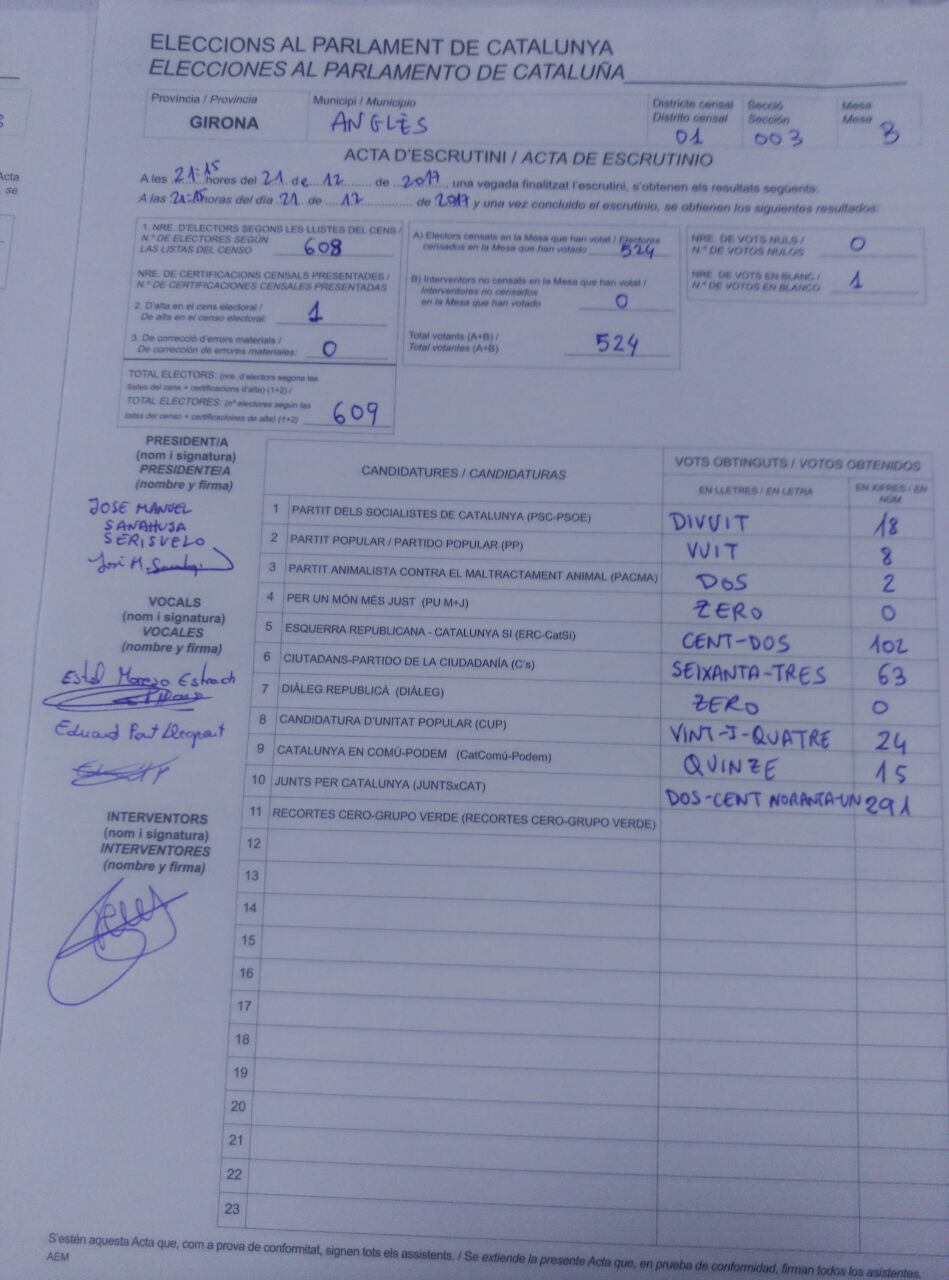 Acta
se
ELECCIONS AL PARLAMENT DE CATALUNYA
ELECCIONES AL PARLAMENTO DE CATALUÑA
Província / Provincia
GIRONA
Municipi / Municipio
ANGLÈS
Districte censal
Distrito censal
01
Secció
Sección
003
Mesa
Mesa
B
ACTA D'ESCRUTINI / ACTA DE ESCRUTINIO
A les 21:15 hores del 21 de 12 de 2017, una vegada finalitzat l'escrutini, s'obtenen els resultats següents:
A las 21:15 horas del día 21 de 12 de 2017 y una vez concluido el escrutinio, se obtienen los siguientes resultados:
1. NRE. D'ELECTORS SEGONS LES LLISTES DEL CENS /
N.º DE ELECTORES SEGÚN
LAS LISTAS DEL CENSO 608
NRE. DE CERTIFICACIONS CENSALS PRESENTADES /
N.º DE CERTIFICACIONES CENSALES PRESENTADAS
2. D'alta en el cens electoral /
De alta en el censo electoral: 1
3. De correcció d'errors materials /
De corrección de errores materiales: 0
TOTAL ELECTORS: (nre. d'electors segons les
llistes del cens + certificacions d'alta) (1+2) /
TOTAL ELECTORES: (nº electores según las
listas del censo + certificaciones de alta) (1+2) 609
A) Electors censats en la Mesa que han votat / Electores
censados en la Mesa que han votado 524
B) Interventors no censats en la Mesa que han votat /
Interventores no censados
en la Mesa que han votado 0
Total votants (A+B) /
Total votantes (A+B) 524
NRE. DE VOTS NULS /
N.º DE VOTOS NULOS 0
NRE. DE VOTS EN BLANC /
N.º DE VOTOS EN BLANCO 1
PRESIDENT/A
(nom i signatura)
PRESIDENTE/A
(nombre y firma)
JOSE MANUEL
SANAHUJA
SERISUELO
VOCALS
(nom i signatura)
VOCALES
(nombre y firma)
Estel Moreno Estrach
Eduard Pont
INTERVENTORS
(nom i signatura)
INTERVENTORES
(nombre y firma)
CANDIDATURES / CANDIDATURAS
VOTS OBTINGUTS / VOTOS OBTENIDOS
EN LLETRES / EN LETRA
EN XIFRES / EN
NÚM.
1 PARTIT DELS SOCIALISTES DE CATALUNYA (PSC-PSOE) DIVUIT 18
2 PARTIT POPULAR / PARTIDO POPULAR (PP) VUIT 8
3 PARTIT ANIMALISTA CONTRA EL MALTRACTAMENT ANIMAL (PACMA) DOS 2
4 PER UN MÓN MÉS JUST (PU M+J) ZERO 0
5 ESQUERRA REPUBLICANA - CATALUNYA SÍ (ERC-CatSí) CENT-DOS 102
6 CIUTADANS-PARTIDO DE LA CIUDADANÍA (C's) SEIXANTA-TRES 63
7 DIÀLEG REPUBLICÀ (DIÀLEG) ZERO 0
8 CANDIDATURA D'UNITAT POPULAR (CUP) VINT-I-QUATRE 24
9 CATALUNYA EN COMÚ-PODEM (CatComú-Podem) QUINZE 15
10 JUNTS PER CATALUNYA (JUNTSxCAT) DOS-CENT NORANTA-UN 291
11 RECORTES CERO-GRUPO VERDE (RECORTES CERO-GRUPO VERDE)
12
13
14
15
16
17
18
19
20
21
22
23
S'estén aquesta Acta que, com a prova de conformitat, signen tots els assistents. / Se extiende la presente Acta que, en prueba de conformidad, firman todos los asistentes.
AEM